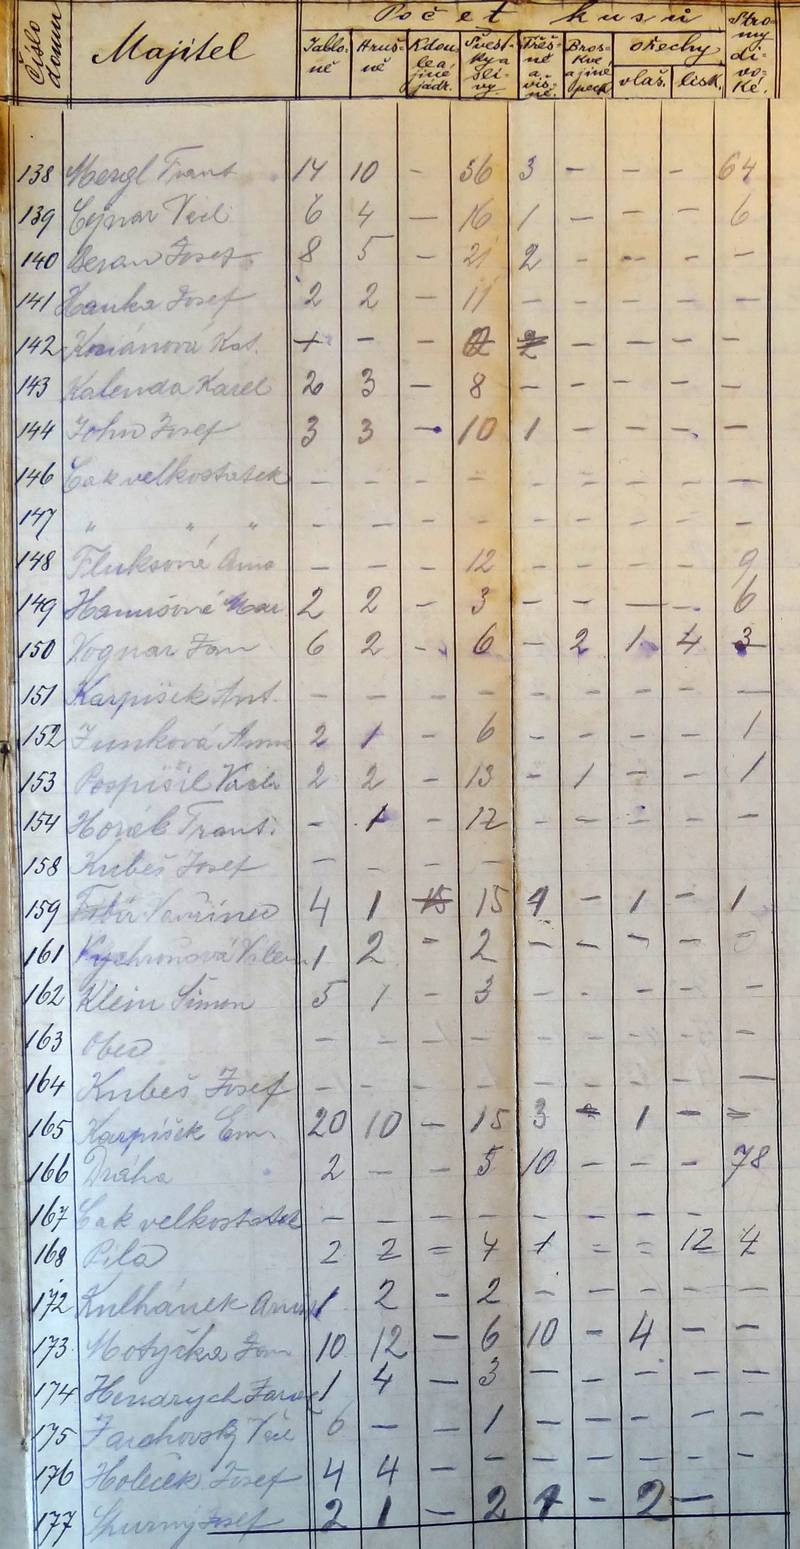 Číslo domu Majitel Počet kusů Stromy divoké.
Jablo-ně Hruš-ně Kdou-le a jiné jádr. Švest-ky a slí-vy Třeš-ně a viš-ně. Bros-kve, a jiné peck. ořechy
vlaš. lisk.
138 Mergl Frant 14 10 - 56 3 - - - 64
139 Cejnar Václ. 6 4 - 16 1 - - - 6
140 Beran Josef 8 5 - 21 2 - - - -
141 Hanka Josef 2 2 - 11 - - - - -
142 Kat. - - - - - - -
143 Kalenda Karel 2 3 - 8 - - - - -
144 John Josef 3 3 - 10 1 - - - -
146 Cak velkostatek - - - - - - - - -
147 " " " - - - - - - - - -
148 Fluksová - - - 12 - - - - 9
149 Hanušová Mar 2 2 - 3 - - - - 6
150 Vognar Jan 6 2 - 6 - 2 1 4 3
151 Karpíšek Ant. - - - - - - - - -
152 Junková Anna 2 1 - 6 - - - - 1
153 Pospíšil Václ. 2 2 - 13 - 1 - - 1
154 Horák Frant. - 1 - 12 - - - - -
158 Kubeš Josef - - - -
159 Vavřinec 4 1 15 15 1 - 1 - 1
161 1 2 - 2 - - - -
162 Klein Šimon 5 1 - 3 - - - - -
163 Obec - - - - - - - - -
164 Kubeš Josef - - - - - - - - -
165 Karpíšek Em. 20 10 - 15 3 - 1 - =
166 Dráha 2 - - 5 10 - - - 78
167 Cak velkostatek - - - - - - - -
168 Pila 2 2 = 4 1 = = 12 4
172 Kulhánek 1 2 - 2 - - - - -
173 Motyčka Jan 10 12 - 6 10 - 4 - -
174 Hendrych 1 4 - 3 - - - - -
175 Václ 6 - - 1 - - - - -
176 Holeček Josef 4 4 - - - - - - -
177 Spurný Josef 2 1 - 2 1 - 2 -